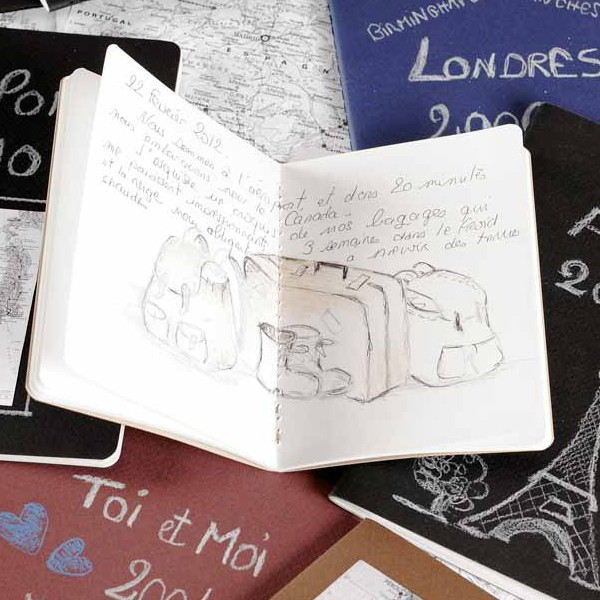 PORTUGAL
ESPAGN
BIRMINGHAM
LONDRES
2.00
Por
10
22 Février 2012.
Nous sommes à l'aéroport, et dans 20 minutes
nous embarquons pour le Canada.
J'esquisse un croquis de nos bagages qui
me paraissent 3 semaines dans le froid
et la neige nous obligent à avoir des tenues
chaudes
2
Toi et Moi
200